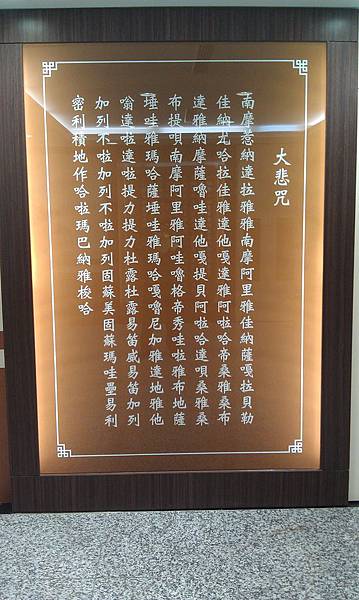 大悲咒
南摩惹納達拉雅雅南摩阿里雅佳納薩嘎拉貝勒
佳納尤哈拉佳雅達他嘎達雅阿啦哈帝桑雅桑布
達雅納摩薩嚕哇達他嘎提貝阿啦哈達唄桑雅桑
布提唄南摩阿里雅阿哇嚕格帝秀哇啦雅布地薩
埵哇雅瑪哈薩埵哇雅瑪哈嘎嚕尼加雅達地雅他
嗡達啦達啦提力提力杜露杜露易笛威易笛加列
加列不啦加列不啦加列固蘇美固蘇瑪哇壘易利
密利積地作哈啦瑪巴納雅梭哈